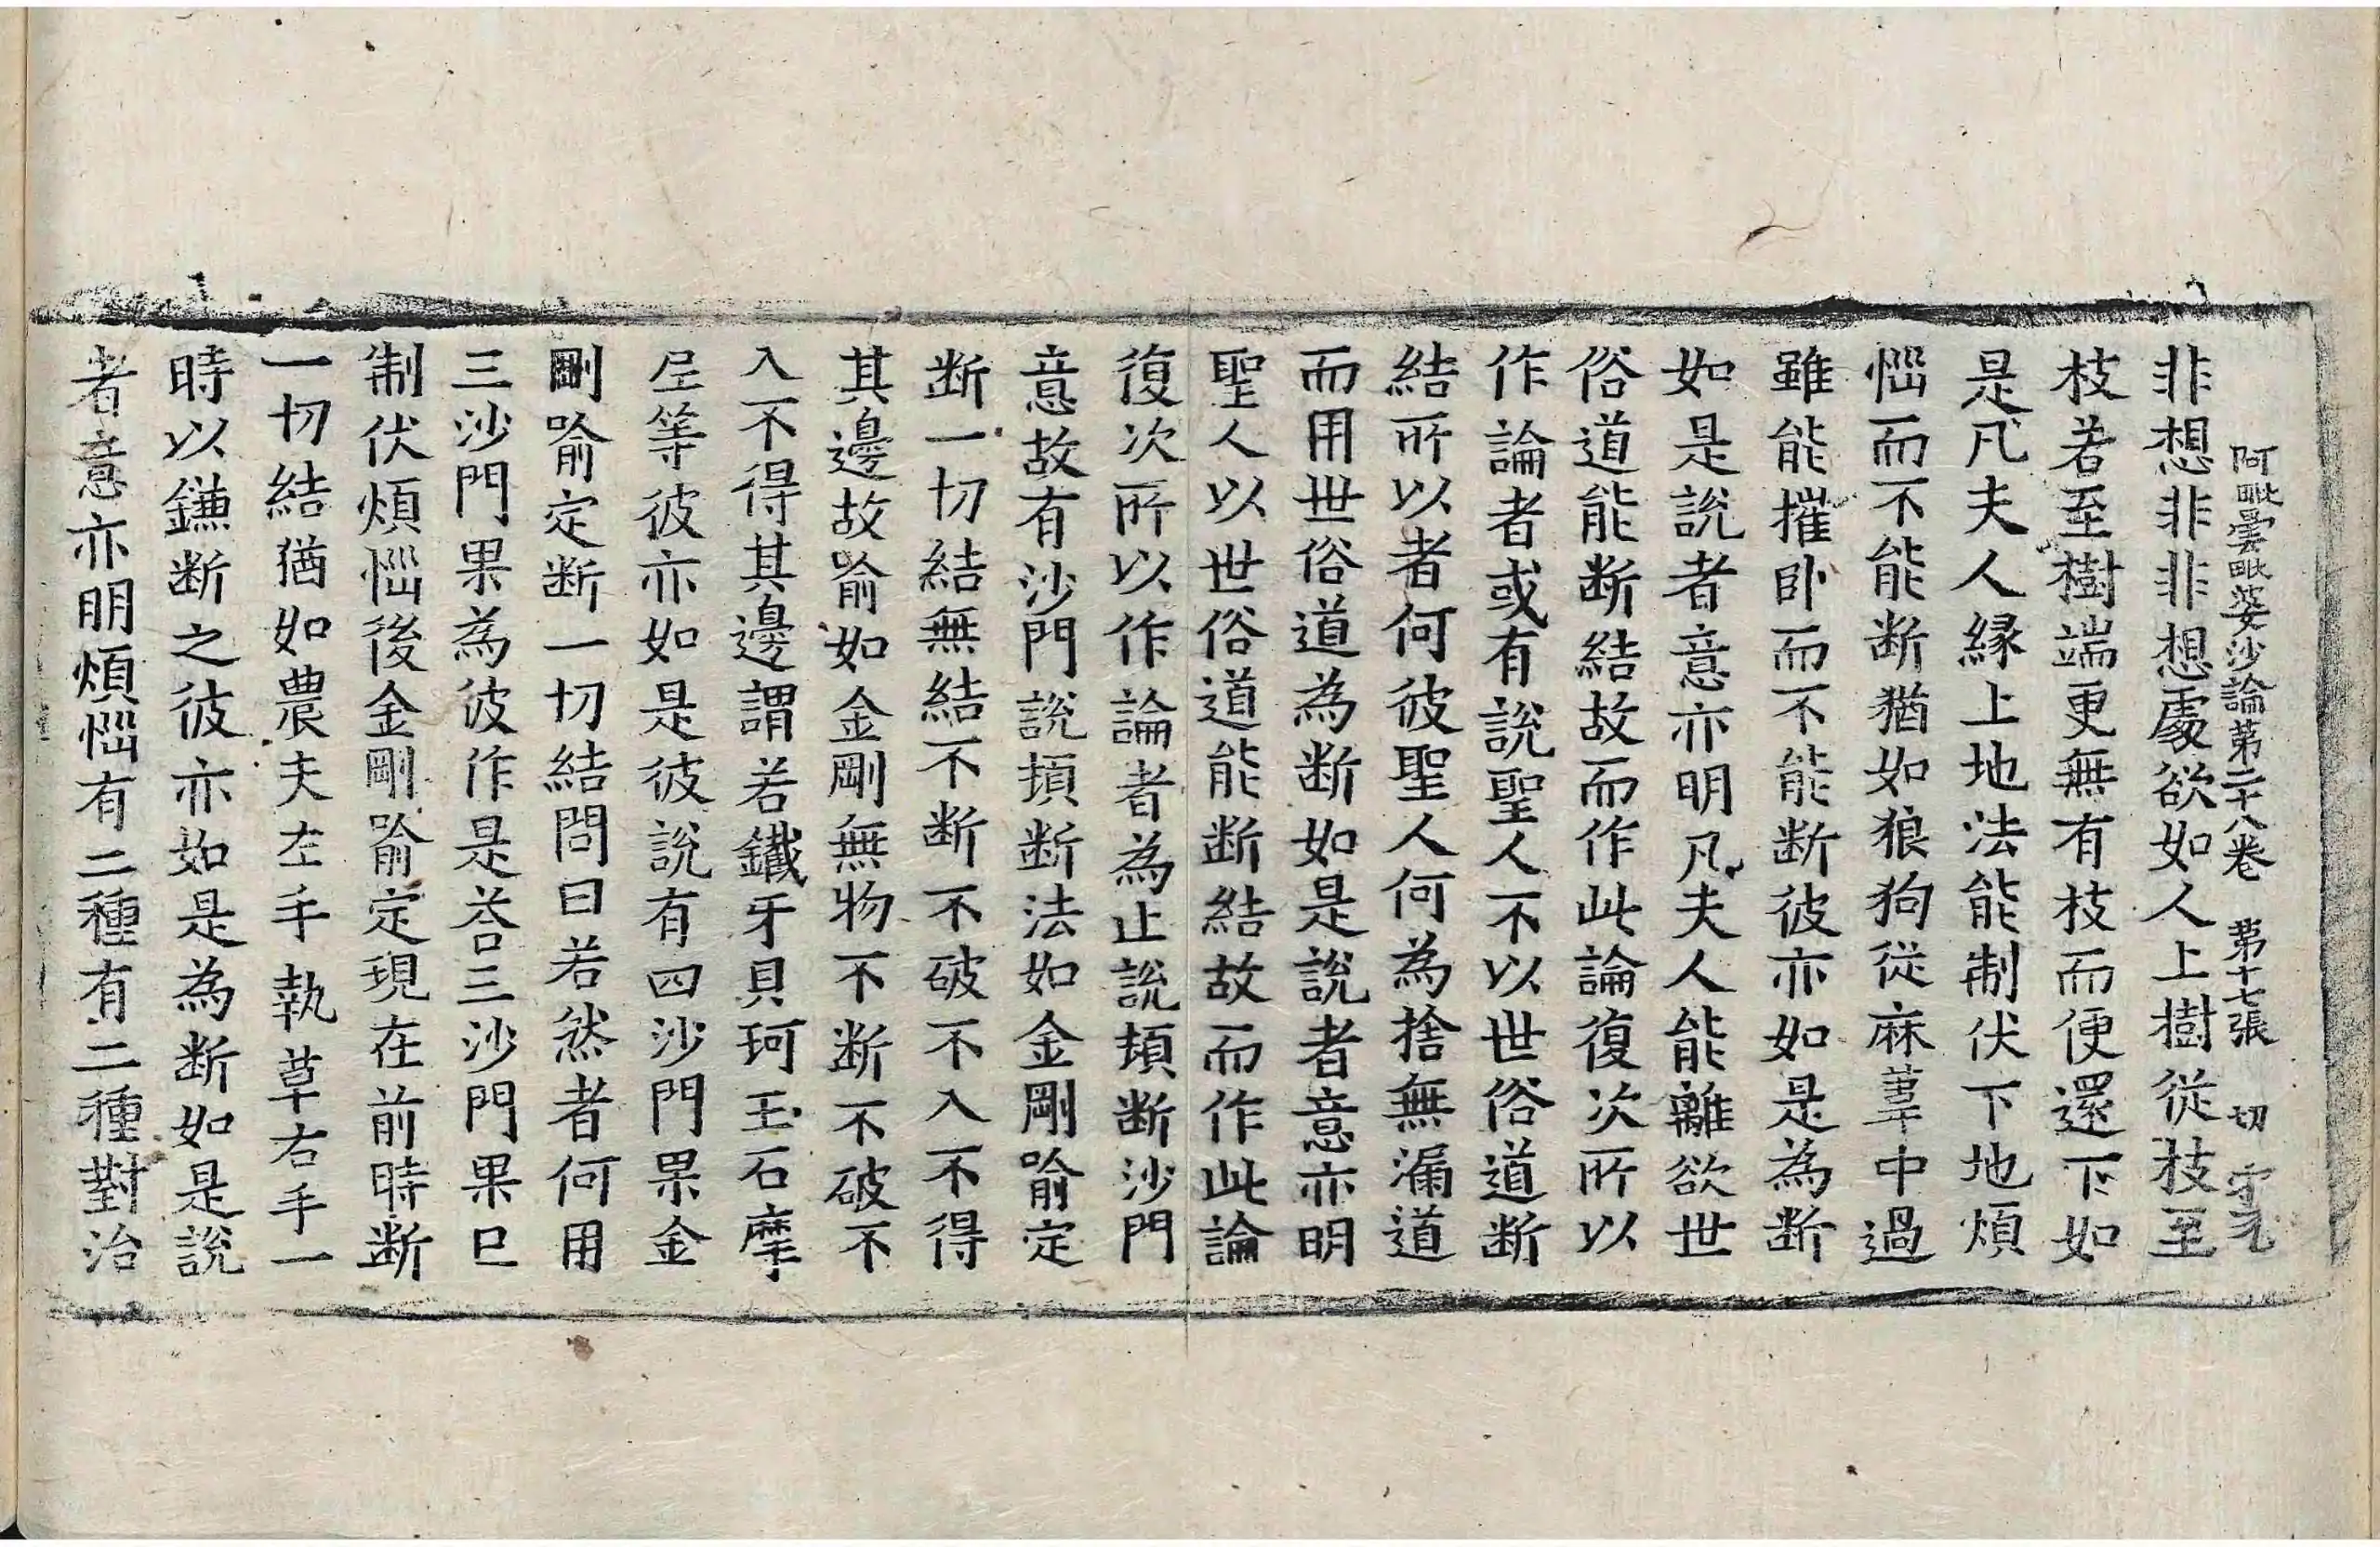 阿毗曇毗婆沙論第二十八卷 第十七張 切
非想非非想處欲如人上樹從枝至
枝若至樹端更無有枝而便還下如
是凡夫人緣上地法能制伏下地煩
惱而不能断猶如狼狗從麻葦中過
雖能摧卧而不能断彼亦如是為断
如是說者意亦明凡夫人能離欲世
俗道能断結故而作此論復次所以
作論者或有說聖人不以世俗道断
結所以者何彼聖人何為捨無漏道
而用世俗道為断如是說者意亦明
聖人以世俗道能断結故而作此論
復次所以作論者為止說頓断沙門
意故有沙門說頓断法如金剛喻定
断一切結無結不断不破不入不得
其邊故喻如金剛無物不断不破不
入不得其邊謂若鐵牙貝珂玉石摩
尼等彼亦如是彼說有四沙門果金
剛喻定断一切結問曰若然者何用
三沙門果為彼作是荅三沙門果已
制伏煩惱後金剛喻定現在前時断
一切結猶如農夫左手執草右手一
時以鎌断之彼亦如是為断如是說
者意亦明煩惱有二種有二種對治